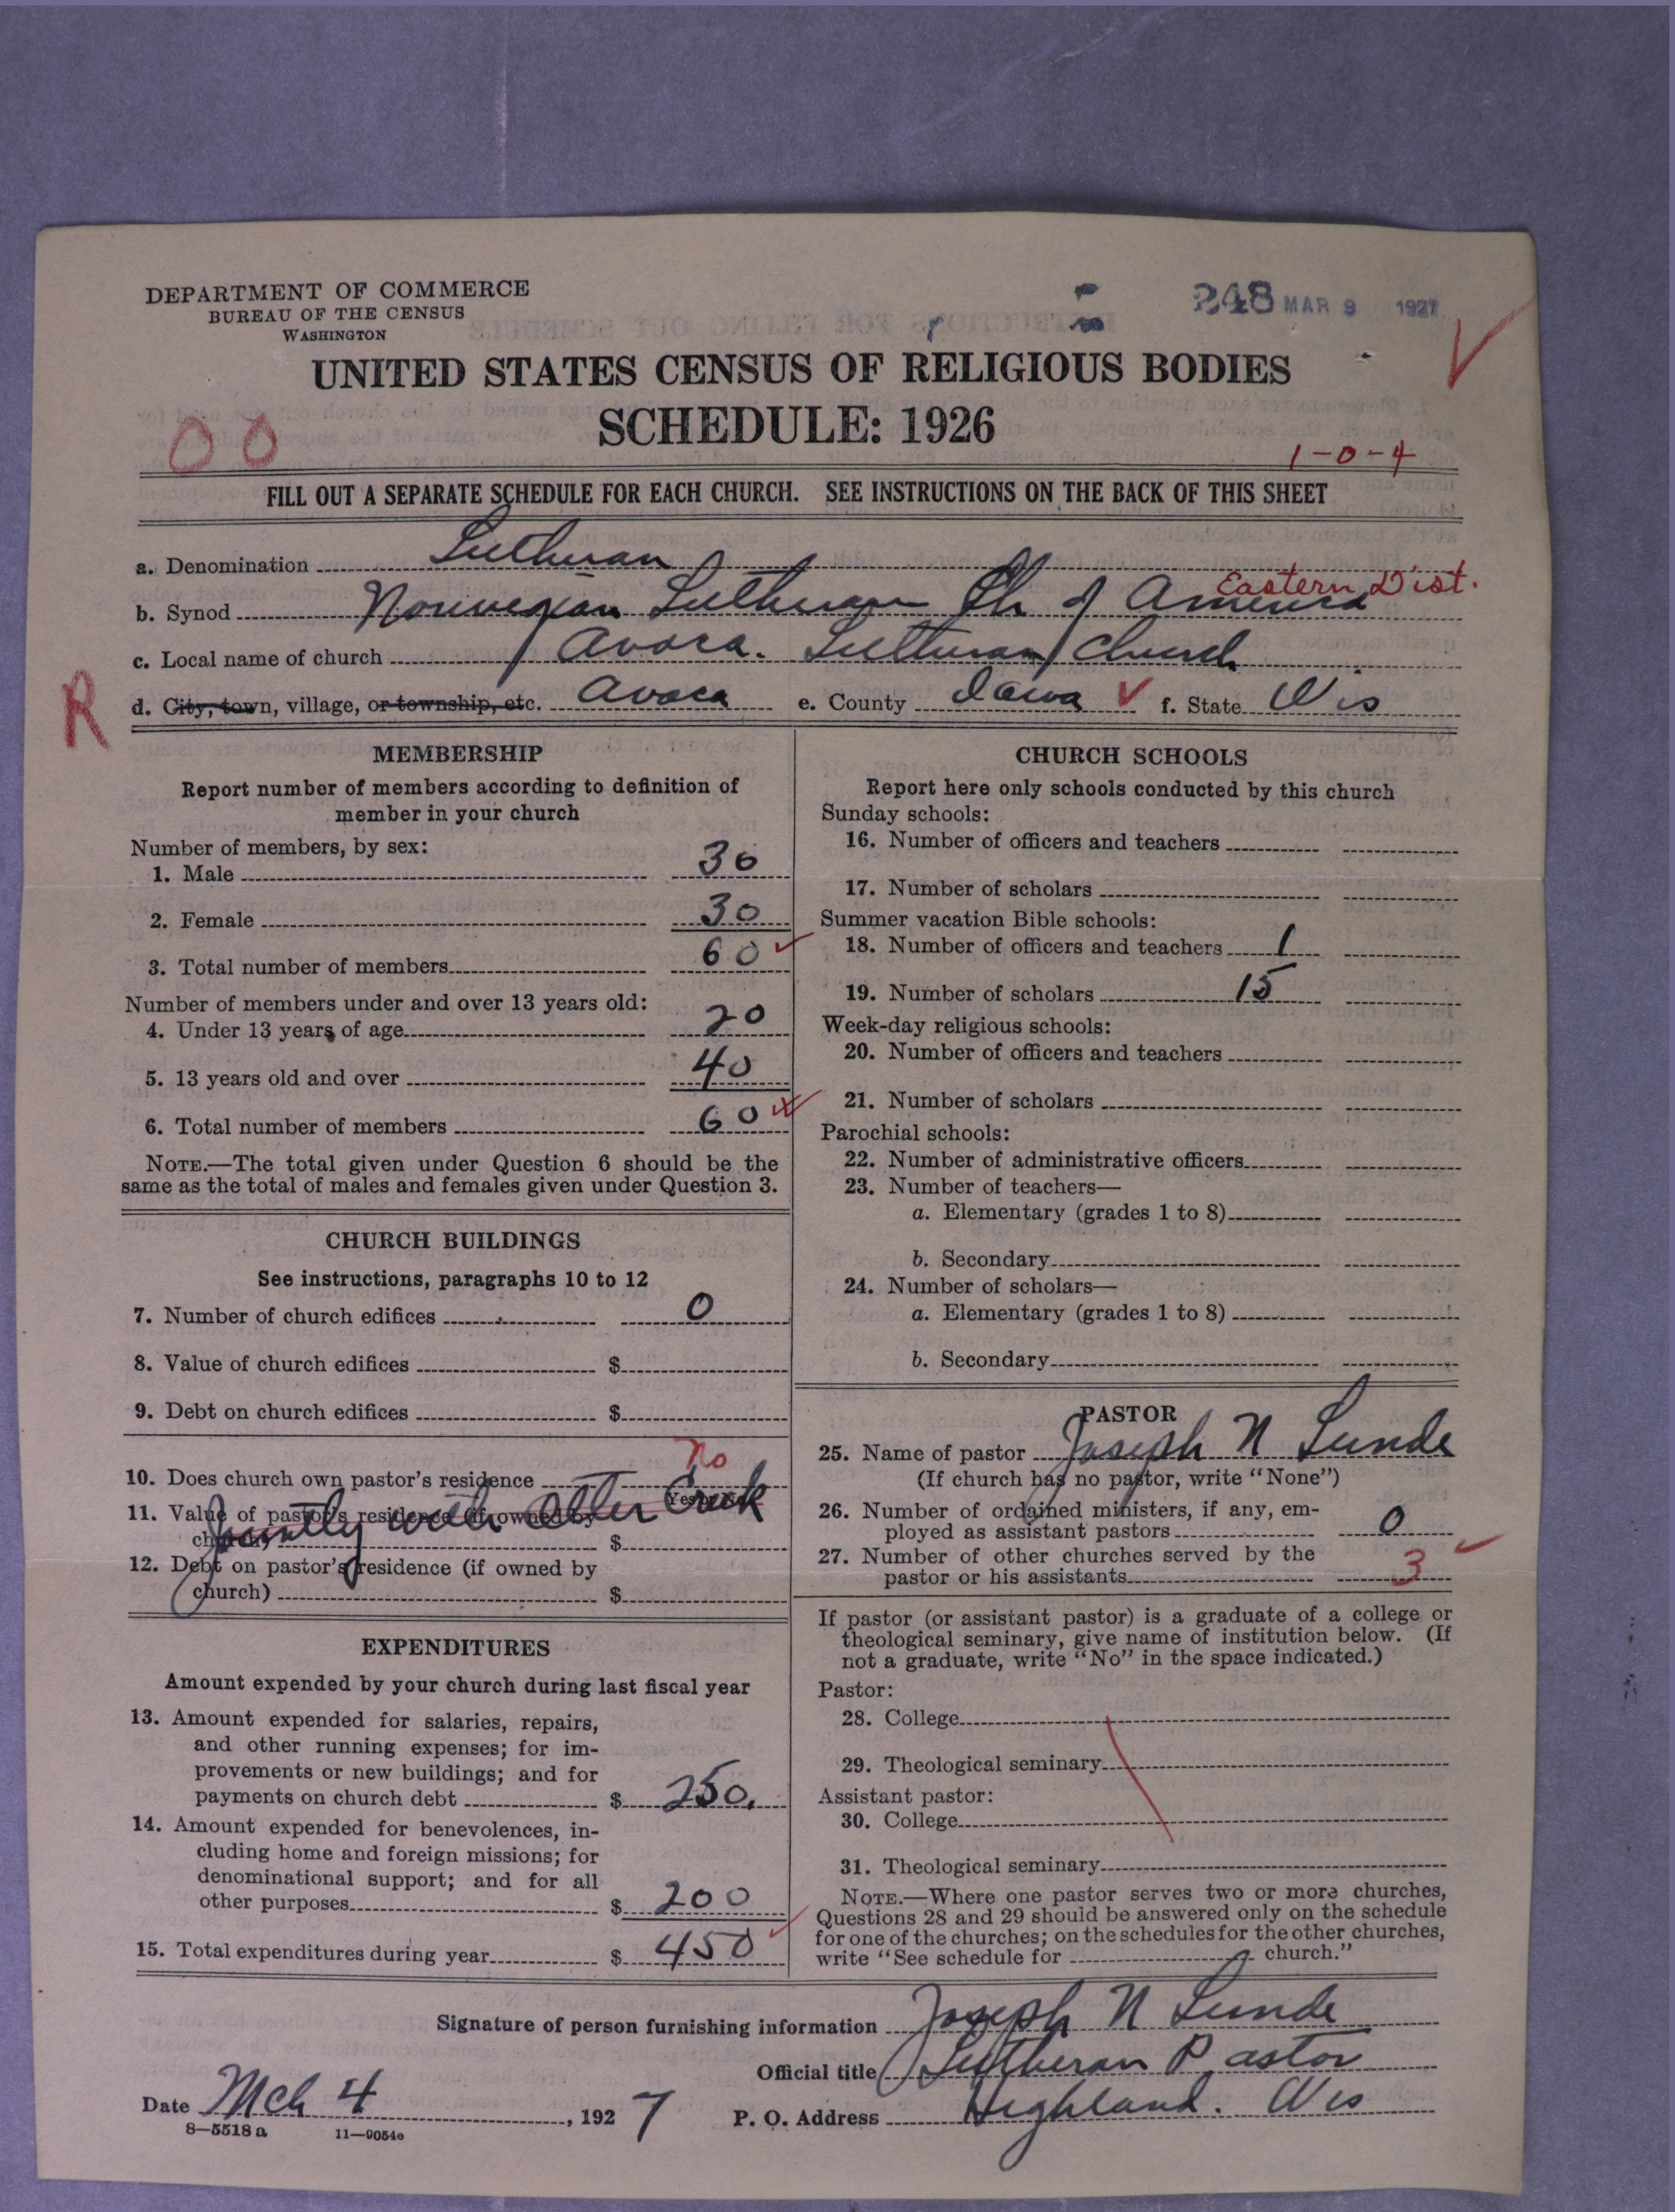 DEPARTMENT OF COMMERCE
BUREAU OF THE CENSUS
WASHINGTON
248 MAR 9 1927
UNITED STATES CENSUS OF RELIGIOUS BODIES
SCHEDULE: 1926
00
1-0-4
FILL OUT A SEPARATE SCHEDULE FOR EACH CHURCH. SEE INSTRUCTIONS ON THE BACK OF THIS SHEET
a. Denomination Lutheran
Eastern Dist.
b. Synod Norwegian Lutheran Ch of America
c. Local name of church Avoca. Lutheran Church
R
d. City, town, village, or township, etc. Avoca e. County Iowa f. State Wis
MEMBERSHIP
Report number of members according to definition of
member in your church
Number of members, by sex:
1. Male 30
2. Female 30
3. Total number of members 60
Number of members under and over 13 years old:
4. Under 13 years of age 20
5. 13 years old and over 40
6. Total number of members 60
NOTE.—The total given under Question 6 should be the
same as the total of males and females given under Question 3.
CHURCH BUILDINGS
See instructions, paragraphs 10 to 12
7. Number of church edifices 0
8. Value of church edifices $
9. Debt on church edifices $
10. Does church own pastor's residence No
11. Value of pastor's residence (if owned by
church) $
Jointly with Otter Creek
12. Debt on pastor's residence (if owned by
church) $
EXPENDITURES
Amount expended by your church during last fiscal year
13. Amount expended for salaries, repairs,
and other running expenses; for im-
provements or new buildings; and for
payments on church debt $ 250.
14. Amount expended for benevolences, in-
cluding home and foreign missions; for
denominational support; and for all
other purposes $ 200
15. Total expenditures during year $ 450
CHURCH SCHOOLS
Report here only schools conducted by this church
Sunday schools:
16. Number of officers and teachers
17. Number of scholars
Summer vacation Bible schools:
18. Number of officers and teachers 1
19. Number of scholars 15
Week-day religious schools:
20. Number of officers and teachers
21. Number of scholars
Parochial schools:
22. Number of administrative officers
23. Number of teachers—
a. Elementary (grades 1 to 8)
b. Secondary
24. Number of scholars—
a. Elementary (grades 1 to 8)
b. Secondary
PASTOR
25. Name of pastor Joseph N Lunde
(If church has no pastor, write "None")
26. Number of ordained ministers, if any, em-
ployed as assistant pastors 0
27. Number of other churches served by the
pastor or his assistants 3
If pastor (or assistant pastor) is a graduate of a college or
theological seminary, give name of institution below. (If
not a graduate, write "No" in the space indicated.)
Pastor:
28. College
29. Theological seminary
Assistant pastor:
30. College
31. Theological seminary
NOTE.—Where one pastor serves two or more churches,
Questions 28 and 29 should be answered only on the schedule
for one of the churches; on the schedules for the other churches,
write "See schedule for church."
Signature of person furnishing information Joseph N Lunde
Official title Lutheran Pastor
Date Mch 4, 1927 P. O. Address Highland. Wis
8—5518a 11—9054e